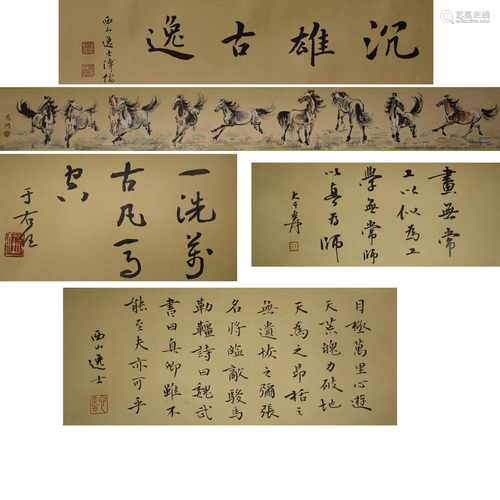 艺狐在线
artfoxlive.com
沉雄古逸
西山逸士溥儒
悲鴻
一洗萬
古凡馬
空
于右任
畫無常
工以似為工
學無常師
以真為師
大千爰
目極萬里心遊
天荒魄力破地
天為之昂括之
無遺恢之彌張
名将臨敵駿馬
勒韁詩曰魏武
書曰真卿雖不
能至夫亦可乎
西山逸士